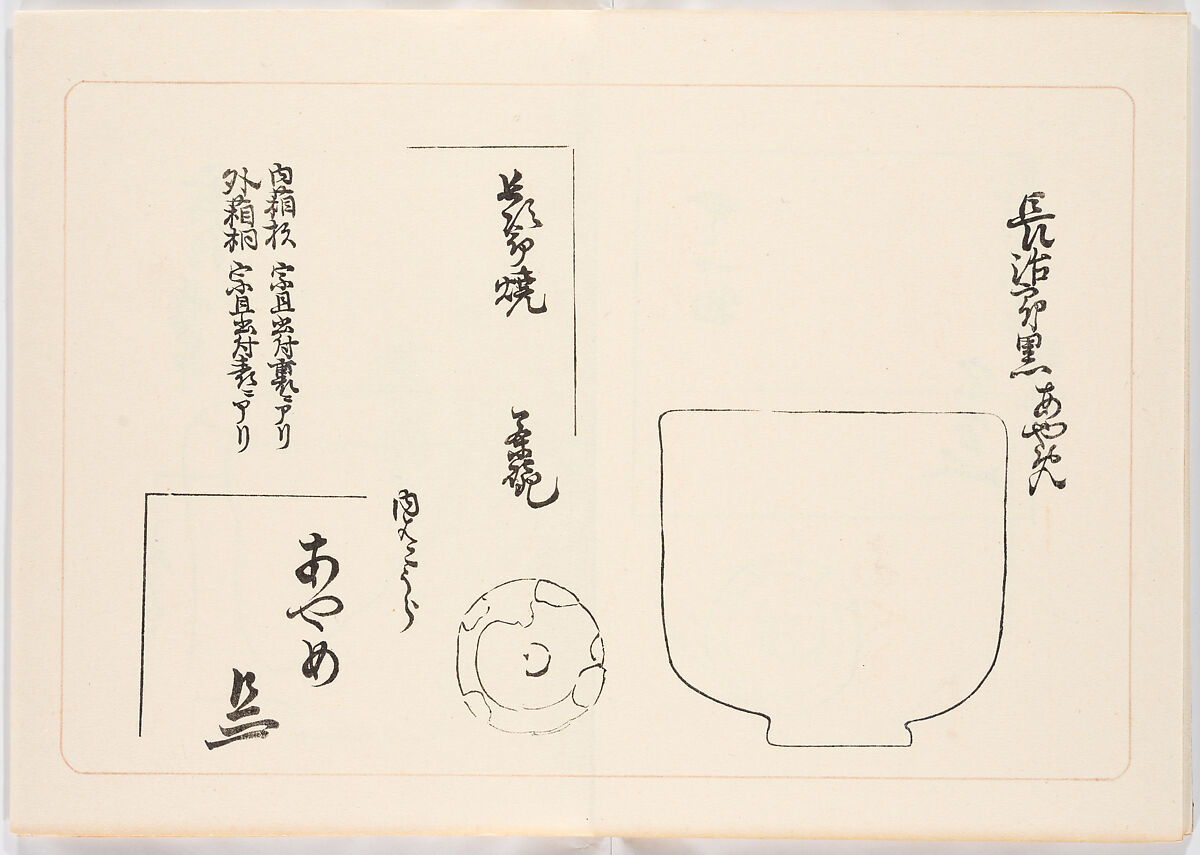 長次郎黒あやめ
長次郎焼
茶碗
内はこうら
あやめ
内箱杉 宗旦書付裏ニアリ
外箱桐 宗旦書付表ニアリ